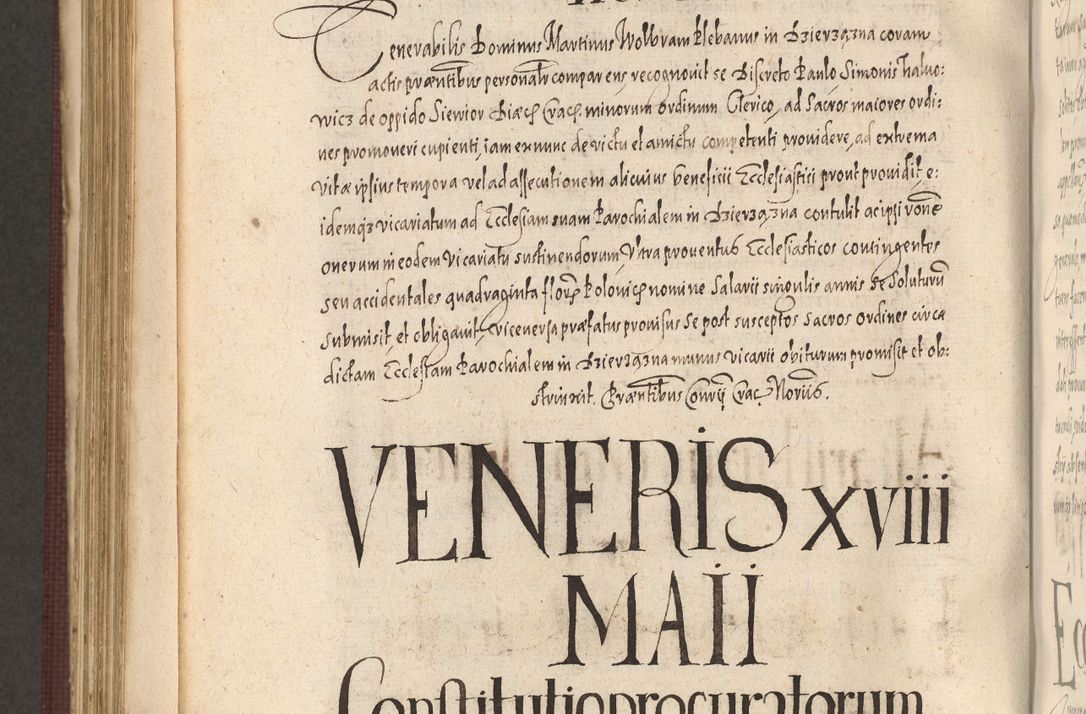 Venerabilis Dominus Martinus Wolbram Plebanus in Dzierzązna coram
actis præntibus personalr comparens recognovit se Discreto Paulo Simonis Haluo:
wicz de oppido Siewior Diæc Crac minorum ordinum Clerico, ad Sacros maiores ordi:
nes promoveri cupienti, iam ex nunc de victu et amictu competenti providere, ad extrema
vitæ ipsius tempora vel ad assecutionem alicuius beneficii Ecclesiastici prout providit, e:
idemqz vicariatum ad Ecclesiam suam Parochialem in Dzierzązna contulit ac ipsi rone
onerum in eodem Vicariatu sustinendorum, Ultra proventus Ecclesiasticos contingentes
seu accidentales quadraginta flor Polonic nomine Salarii singulis annis se Soluturu
submisit, et obligavit, viceversa præfatus provisus Se post susceptos Sacros ordines circa
dictam Ecclesiam Parochialem in Dzierzązna munus vicarii obiturum promisit et ob:
strinxit. Præntibus Crac Noriis.
VENERIS XVIII
MAII
Constitutio procuratorum